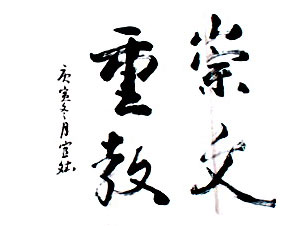 崇文
重教
庚寅冬月宜斌